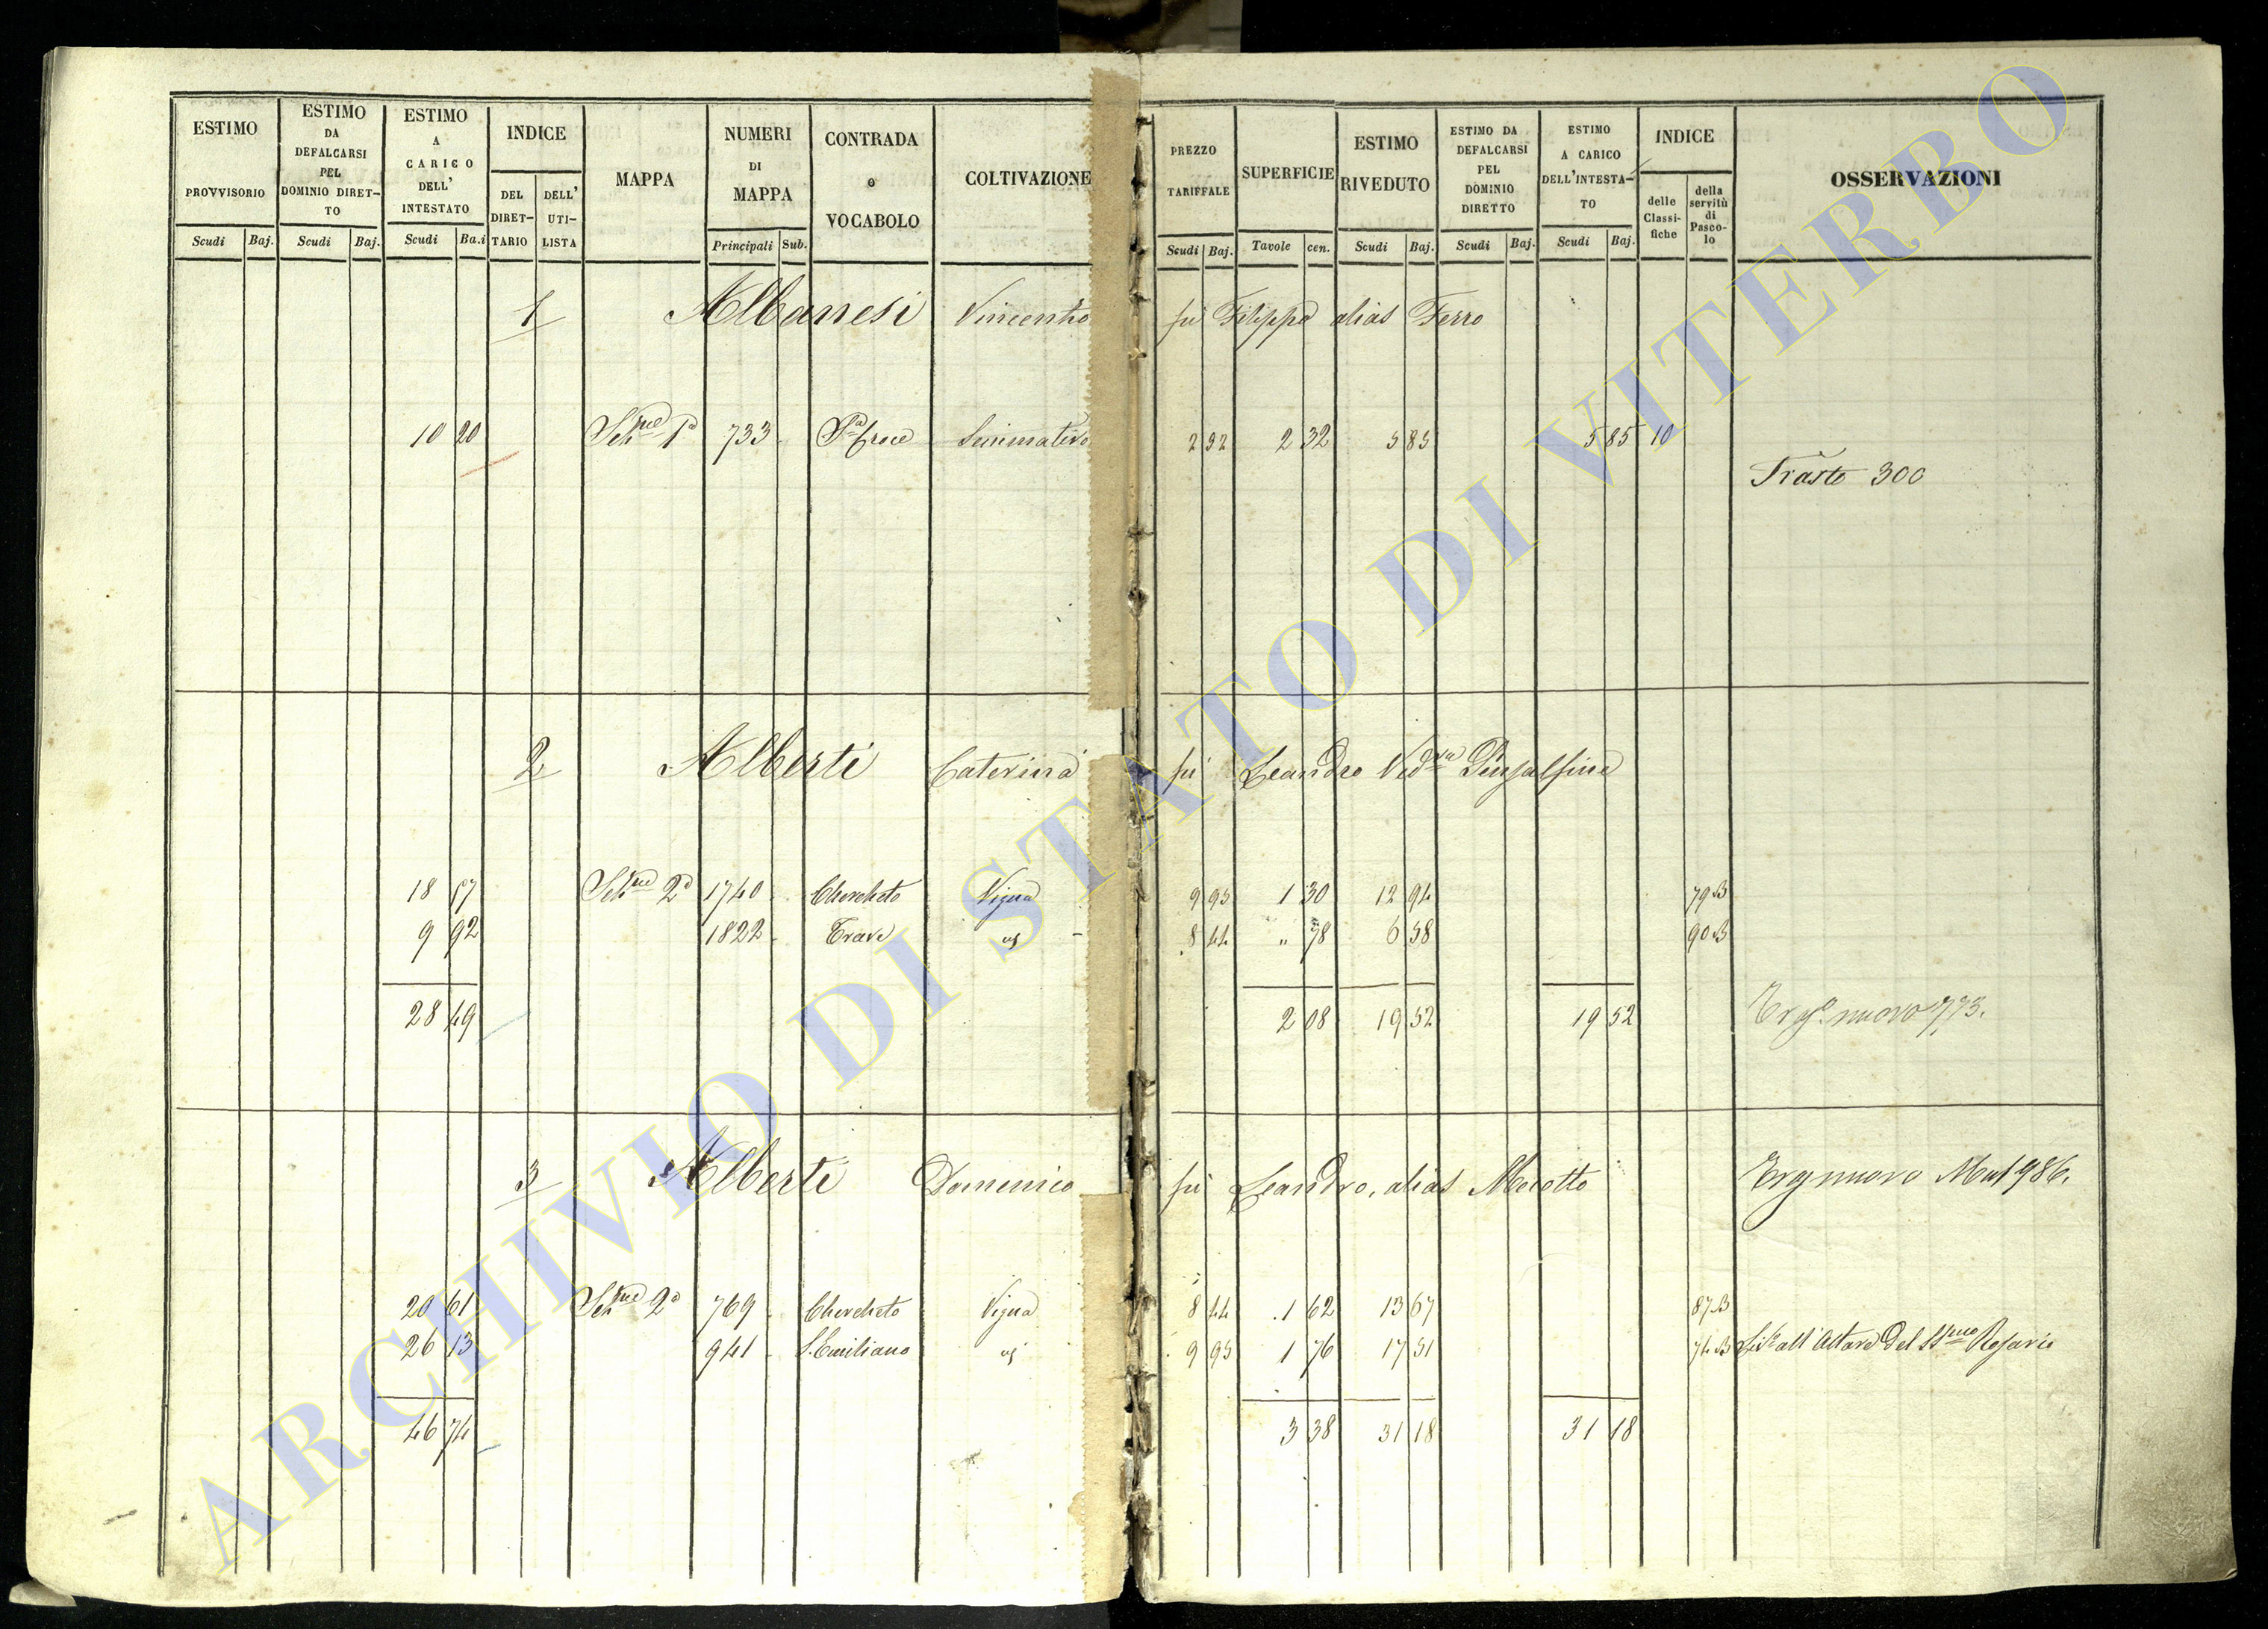 ESTIMO PROVVISORIO Scudi Baj.
ESTIMO DA DEFALCARSI PEL DOMINIO DIRET-TO Scudi Baj.
ESTIMO A CARICO DELL' INTESTATO Scudi Ba.i
INDICE DEL DIRET-TARIO DELL' UTI-LISTA
MAPPA
NUMERI DI MAPPA Principali Sub.
CONTRADA O VOCABOLO
COLTIVAZIONE
PREZZO TARIFFALE Scudi Baj.
SUPERFICIE Tavole cen.
ESTIMO RIVEDUTO Scudi Baj.
ESTIMO DA DEFALCARSI PEL DOMINIO DIRETTO Scudi Baj.
ESTIMO A CARICO DELL'INTESTA-TO Scudi Baj.
INDICE delle Classi-fiche della servitù di Pasco-lo
OSSERVAZIONI
1 Albanesi Vincenzo fu Filippo alias Ferro
10 20 Sez.ne 1a 733 S.a Croce Seminativo 2 52 2 32 5 85 5 85 10
Trasto 300
2 Alberti Caterina fu Leandro Ved.va
18 57 Sez.ne 2a 1740 Chercheto Vigna 9 95 1 30 12 94 79 B
9 92 1822 Trave 8 44 " 78 6 58 90 B
28 49 2 08 19 52 19 52 nuovo 773.
3 Alberti Domenico fu Leandro, alias Mecotto nuovo 986.
20 61 Sez.ne 2a 769 Chercheto Vigna 8 44 1 62 13 67 87 B
26 13 941 S. Emiliano 9 95 1 76 17 51 74 B all'Altare del SS.mo Rosario
46 74 3 38 31 18 31 18
ARCHIVIO DI STATO DI VITERBO